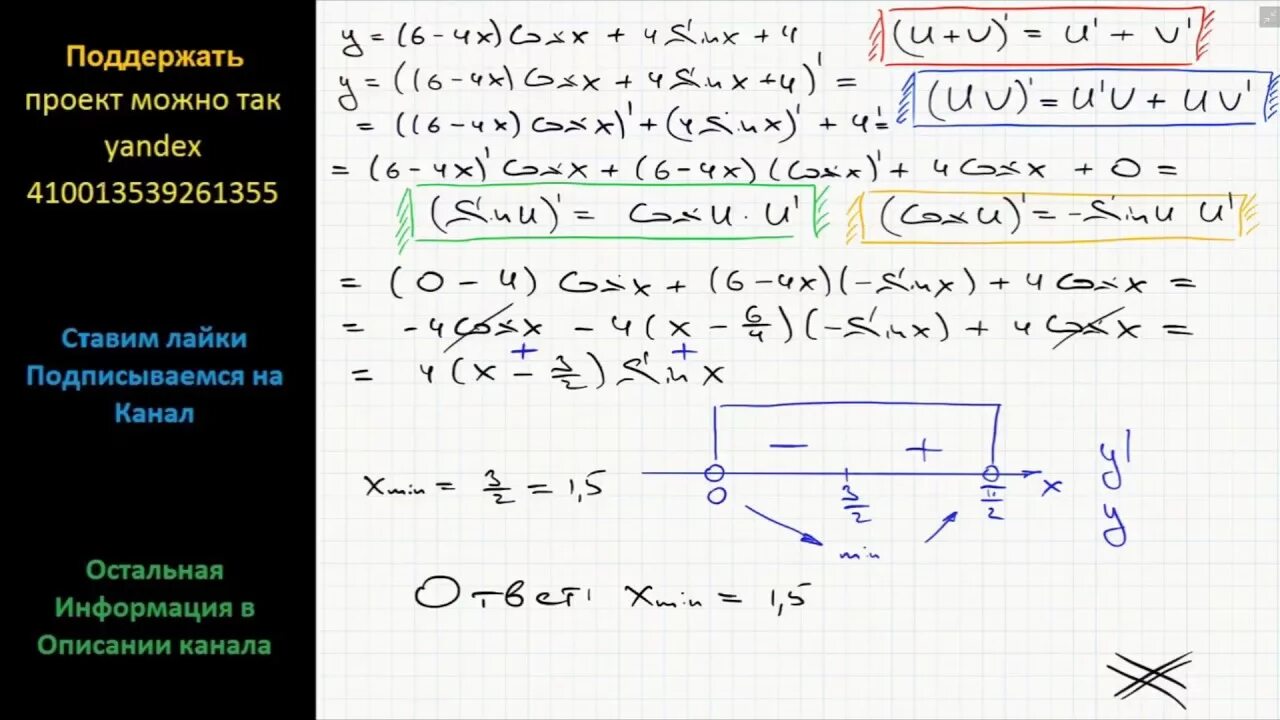 Поддержать
проект можно так
yandex
410013539261355
Ставим лайки
Подписываемся на
Канал
Остальная
Информация в
Описании канала
y = (6-4x)Cosx + 4Sinx + 4
(u+v)' = u' + v'
y = ((6-4x)Cosx + 4Sinx + 4)' =
(uv)' = u'v + uv'
= ((6-4x)Cosx)' + (4Sinx)' + 4' =
= (6-4x)' Cosx + (6-4x)(Cosx)' + 4Cosx + 0 =
(Sin u)' = Cos u · u'
(Cos u)' = -Sin u u'
= (0-4) Cosx + (6-4x)(-Sinx) + 4Cosx =
= -4Cosx - 4(x - 6/4)(-Sinx) + 4Cosx =
+ +
= 4(x - 3/2) Sinx
− +
y'
xmin = 3/2 = 1,5
0 3/2 π/2 x
y
min
Ответ: xmin = 1,5